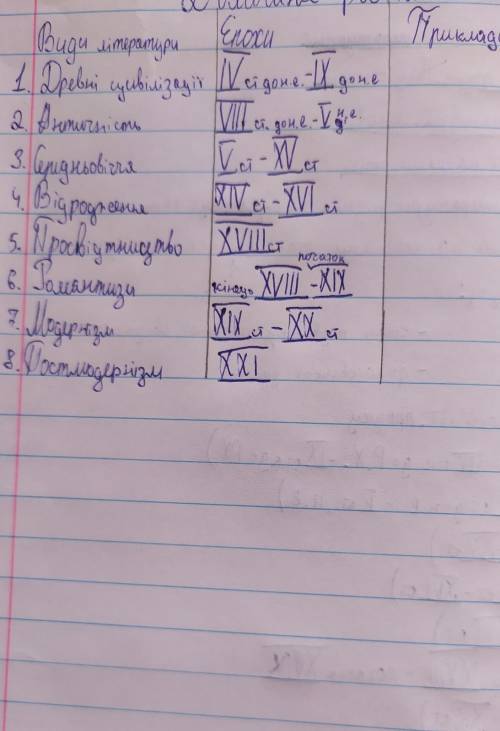 Види літератури Епохи Приклад
1. Древні цивілізації IV ст до н.е. - IX до н.е
2. Античність VIII ст. до н.е. - V н.е.
3. Середньовіччя V ст - XV ст
4. Відродження XIV ст - XVI ст
5. Просвітництво XVIII ст
початок
6. Романтизм кінець XVIII - XIX
7. Модернізм XIX ст - XX ст
8. Постмодернізм XXI